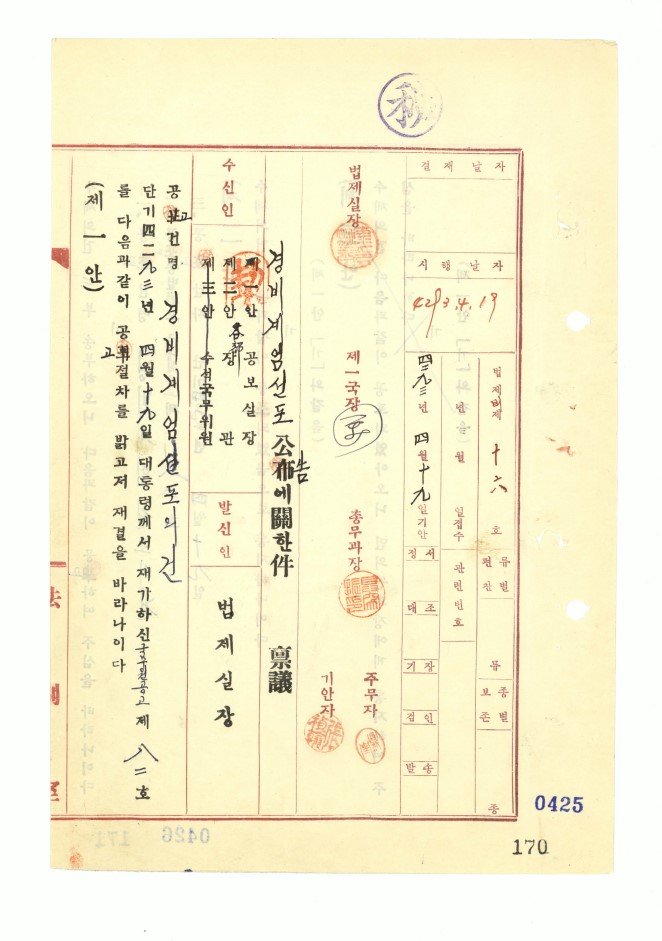 秘
결재날자
시행날자
4293.4.19
법제 제 十六 호
년 월 일접수
四二九三년 四월 十九일기안
편찬 류별
관련번호
보존 종별
류
종
정서
대조
기장
검인
발송
법제실장
제一국장
총무과장
주무자
기안자
경비계엄선포公布告에關한件 稟議
수신인
제一안 공보실장
제二안 各部장관
제三안 수석국무위원
발신인
법제실장
공포고건명 경비계엄선포의 건
단기四二九三년 四월十九일 대통령께서 재가하신 국무원공고 제 八二 호
를 다음과같이 공포고절차를 밝고저 재결을 바라나이다
(제一안)
0425
170
0426
171